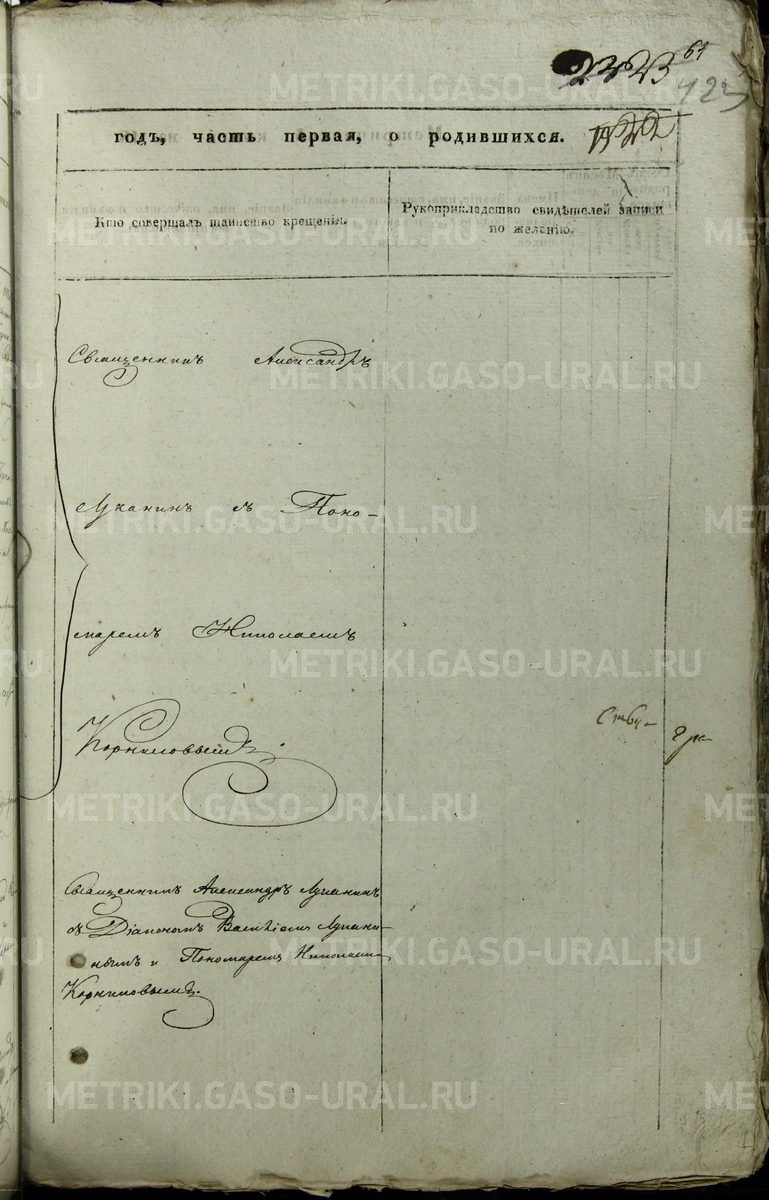 61
423
годъ, часть первая, о родившихся.
Кто совершалъ таинство крещенія.
Рукоприкладство свидѣтелей записи
по желанію.
Священникъ Александръ
Луканинъ съ Поно-
маремъ Николаемъ
Корниловымъ.
Священникъ Александръ Луканинъ
съ Діакономъ Василіемъ Лукани-
нымъ и Пономаремъ Николаемъ
Корниловымъ.
METRIKI.GASO-URAL.RU